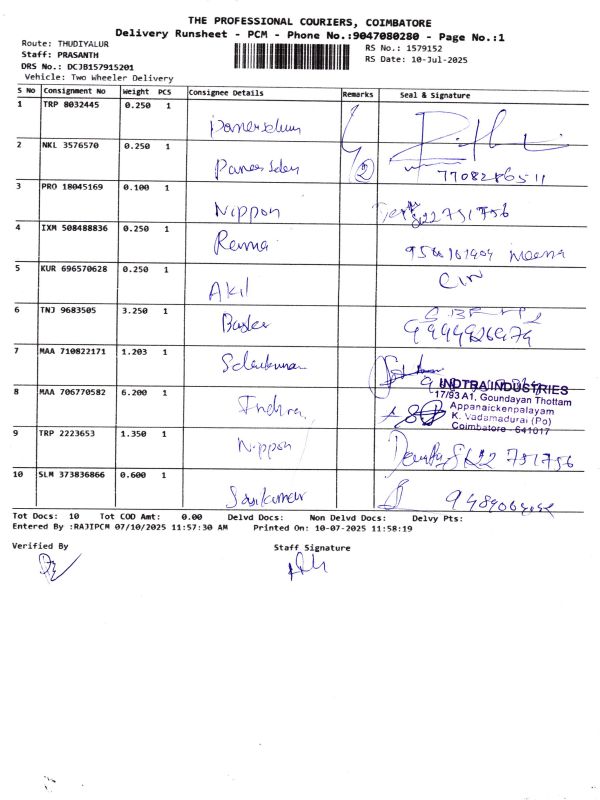 THE PROFESSIONAL COURIERS, COIMBATORE
Delivery Runsheet - PCM - Phone No.:9047080280 - Page No.:1
Route: THUDIYALUR
RS No.: 1579152
Staff: PRASANTH
RS Date: 10-Jul-2025
DRS No.: DCJB157915201
Vehicle: Two Wheeler Delivery
S No Consignment No Weight PCS Consignee Details Remarks Seal & Signature
1 TRP 8032445 0.250 1
2 NKL 3576570 0.250 1 2 7708286511
3 PRO 18045169 0.100 1 Nippon
4 IXM 508488836 0.250 1 Meena
5 KUR 696570628 0.250 1 Akil
6 TNJ 9683505 3.250 1
7 MAA 710822171 1.203 1
8 MAA 706770582 6.200 1 Indhra
INDTRA INDUSTRIES
17/93 A1, Goundayan Thottam
Appanaickenpalayam
K. Vadamadurai (Po)
Coimbatore - 641017
9 TRP 2223653 1.350 1 Nippon 751756
10 SLM 373836866 0.600 1 Sasikumar
Tot Docs: 10 Tot COD Amt: 0.00 Delvd Docs: Non Delvd Docs: Delvy Pts:
Entered By :RAJIPCM 07/10/2025 11:57:30 AM Printed On: 10-07-2025 11:58:19
Verified By
Staff Signature